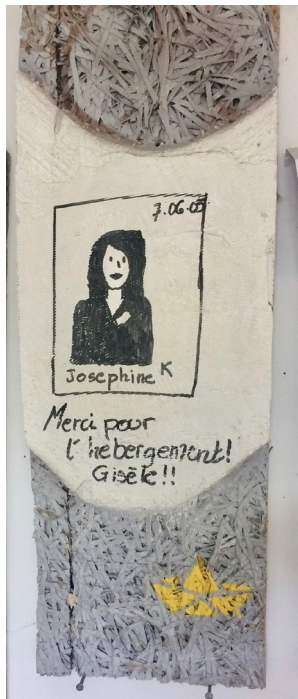 7.06.05
Josephine K
Merci pour
l'hebergement!
Gisèle!!